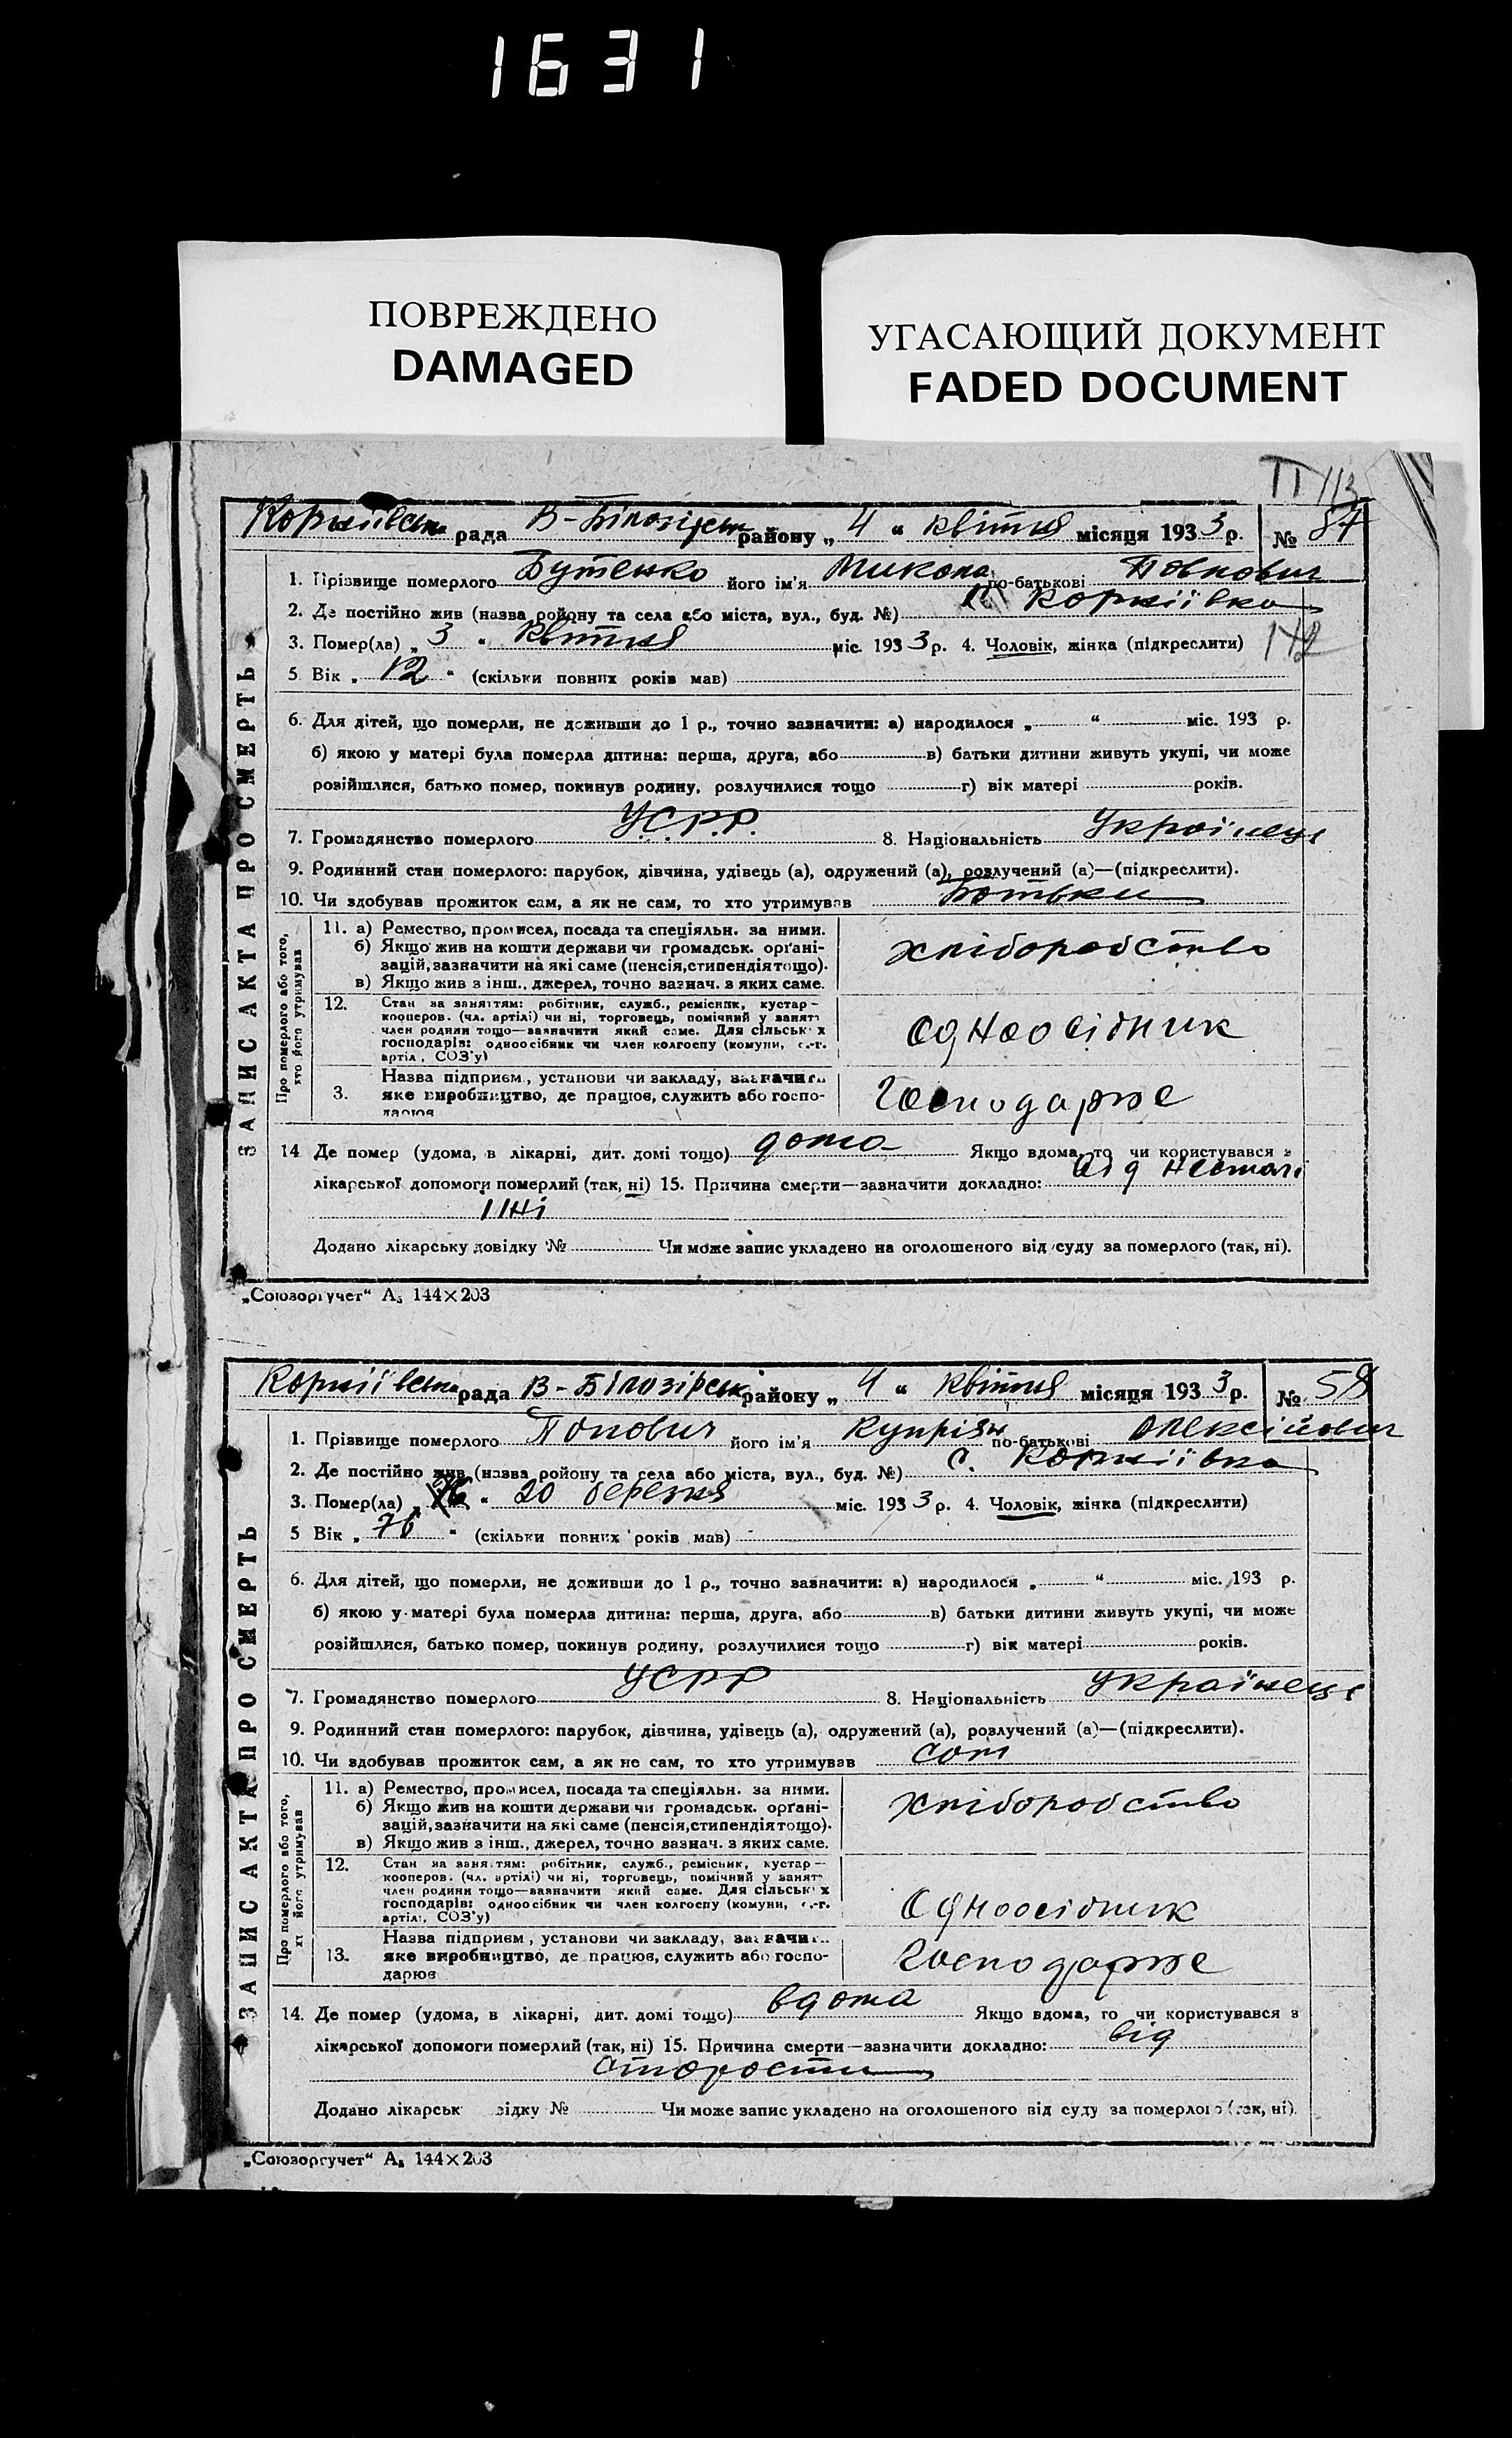 1631
ПОВРЕЖДЕНО
DAMAGED
УГАСАЮЩИЙ ДОКУМЕНТ
FADED DOCUMENT
113
рада В-Білозірськ району „ 4 “ квітня місяця 193 3 р. №
ЗАПИС АКТА ПРО СМЕРТЬ
1. Прізвище померлого Бутенко його ім'я Микола по-батькові Павлович
2. Де постійно жив (назва ройону та села або міста, вул., буд. №) Корніївка
3. Помер(ла) „ 3 “ квітня міс. 193 3 р. 4. Чоловік, жінка (підкреслити) 142
5 Вік „ 12 “ (скільки повних років мав)
6. Для дітей, що померли, не доживши до 1 р., точно зазначити: а) народилося „ “ міс. 193 р.
б) якою у матері була померла дитина: перша, друга, або в) батьки дитини живуть укупі, чи може
розійшлися, батько помер, покинув родину, розлучилися тощо г) вік матері років.
7. Громадянство померлого У.С.Р.Р. 8. Національність Українець
9. Родинний стан померлого: парубок, дівчина, удівець (а), одружений (а), розлучений (а)—(підкреслити).
10. Чи здобував прожиток сам, а як не сам, то хто утримував Батьки
Про померлого або того,
хто його утримував
11. а) Ремество, промисел, посада та спеціяльн. за ними.
б) Якщо жив на кошти держави чи громадськ. орґані-
зацій, зазначити на які саме (пенсія, стипендія тощо).
в) Якщо жив з інш., джерел, точно зазнач. з яких саме.
хліборобство
12. Стан за заняттям: робітник, служб., ремісник, кустар—
кооперов. (чл. артілі) чи ні, торговець, помічний у занятт
член родини тощо—зазначити який саме. Для сільськ х
господарів: одноосібник чи член колгоспу (комуни, с.-г.
артіл, СОЗ'у)
одноосібник
3. Назва підприєм., установи чи закладу, зазначити
яке виробництво, де працює, служить або госпо-
дарює
Господарює
14 Де помер (удома, в лікарні, дит. домі тощо) дома Якщо вдома, то чи користувався з
лікарської допомоги померлий (так, ні) 15. Причина смерти—зазначити докладно: від
Додано лікарську довідку № Чи може запис укладено на оголошеного від суду за померлого (так, ні).
„Союзоргучет“ А₅ 144×203
рада В-Білозірськ району „ 4 “ квітня місяця 193 3 р. № 58
ЗАПИС АКТА ПРО СМЕРТЬ
1. Прізвище померлого Попович його ім'я Купріян по-батькові Олексійович
2. Де постійно жив (назва ройону та села або міста, вул., буд. №) с. Корніївка
3. Помер(ла) „ “ 20 березня міс. 193 3 р. 4. Чоловік, жінка (підкреслити)
5 Вік „ 76 “ (скільки повних років мав)
6. Для дітей, що померли, не доживши до 1 р., точно зазначити: а) народилося „ “ міс. 193 р.
б) якою у матері була померла дитина: перша, друга, або в) батьки дитини живуть укупі, чи може
розійшлися, батько помер, покинув родину, розлучилися тощо г) вік матері років.
7. Громадянство померлого УСРР 8. Національність Українець
9. Родинний стан померлого: парубок, дівчина, удівець (а), одружений (а), розлучений (а)—(підкреслити).
10. Чи здобував прожиток сам, а як не сам, то хто утримував Сам
Про померлого або того,
хт його утримував
11. а) Ремество, промисел, посада та спеціяльн. за ними.
б) Якщо жив на кошти держави чи громадськ. орґані-
зацій, зазначити на які саме (пенсія, стипендія тощо).
в) Якщо жив з інш., джерел, точно зазнач. з яких саме.
хліборобство
12. Стан за заняттям: робітник, служб., ремісник, кустар—
кооперов. (чл. артілі) чи ні, торговець, помічний у занятт
член родини тощо—зазначити який саме. Для сільськ х
господарів: одноосібник чи член колгоспу (комуни, с.-г.
артіл., СОЗ'у)
Одноосібник
13. Назва підприєм., установи чи закладу, зазначи
яке виробництво, де працює, служить або госпо-
дарює
Господарює
14. Де помер (удома, в лікарні, дит. домі тощо) вдома Якщо вдома, то чи користувався з
лікарської допомоги померлий (так, ні) 15. Причина смерти—зазначити докладно: від
старости
Додано лікарськ відку № Чи може запис укладено на оголошеного від суду за померлого (так, ні).
„Союзоргучет“ А₅ 144×203